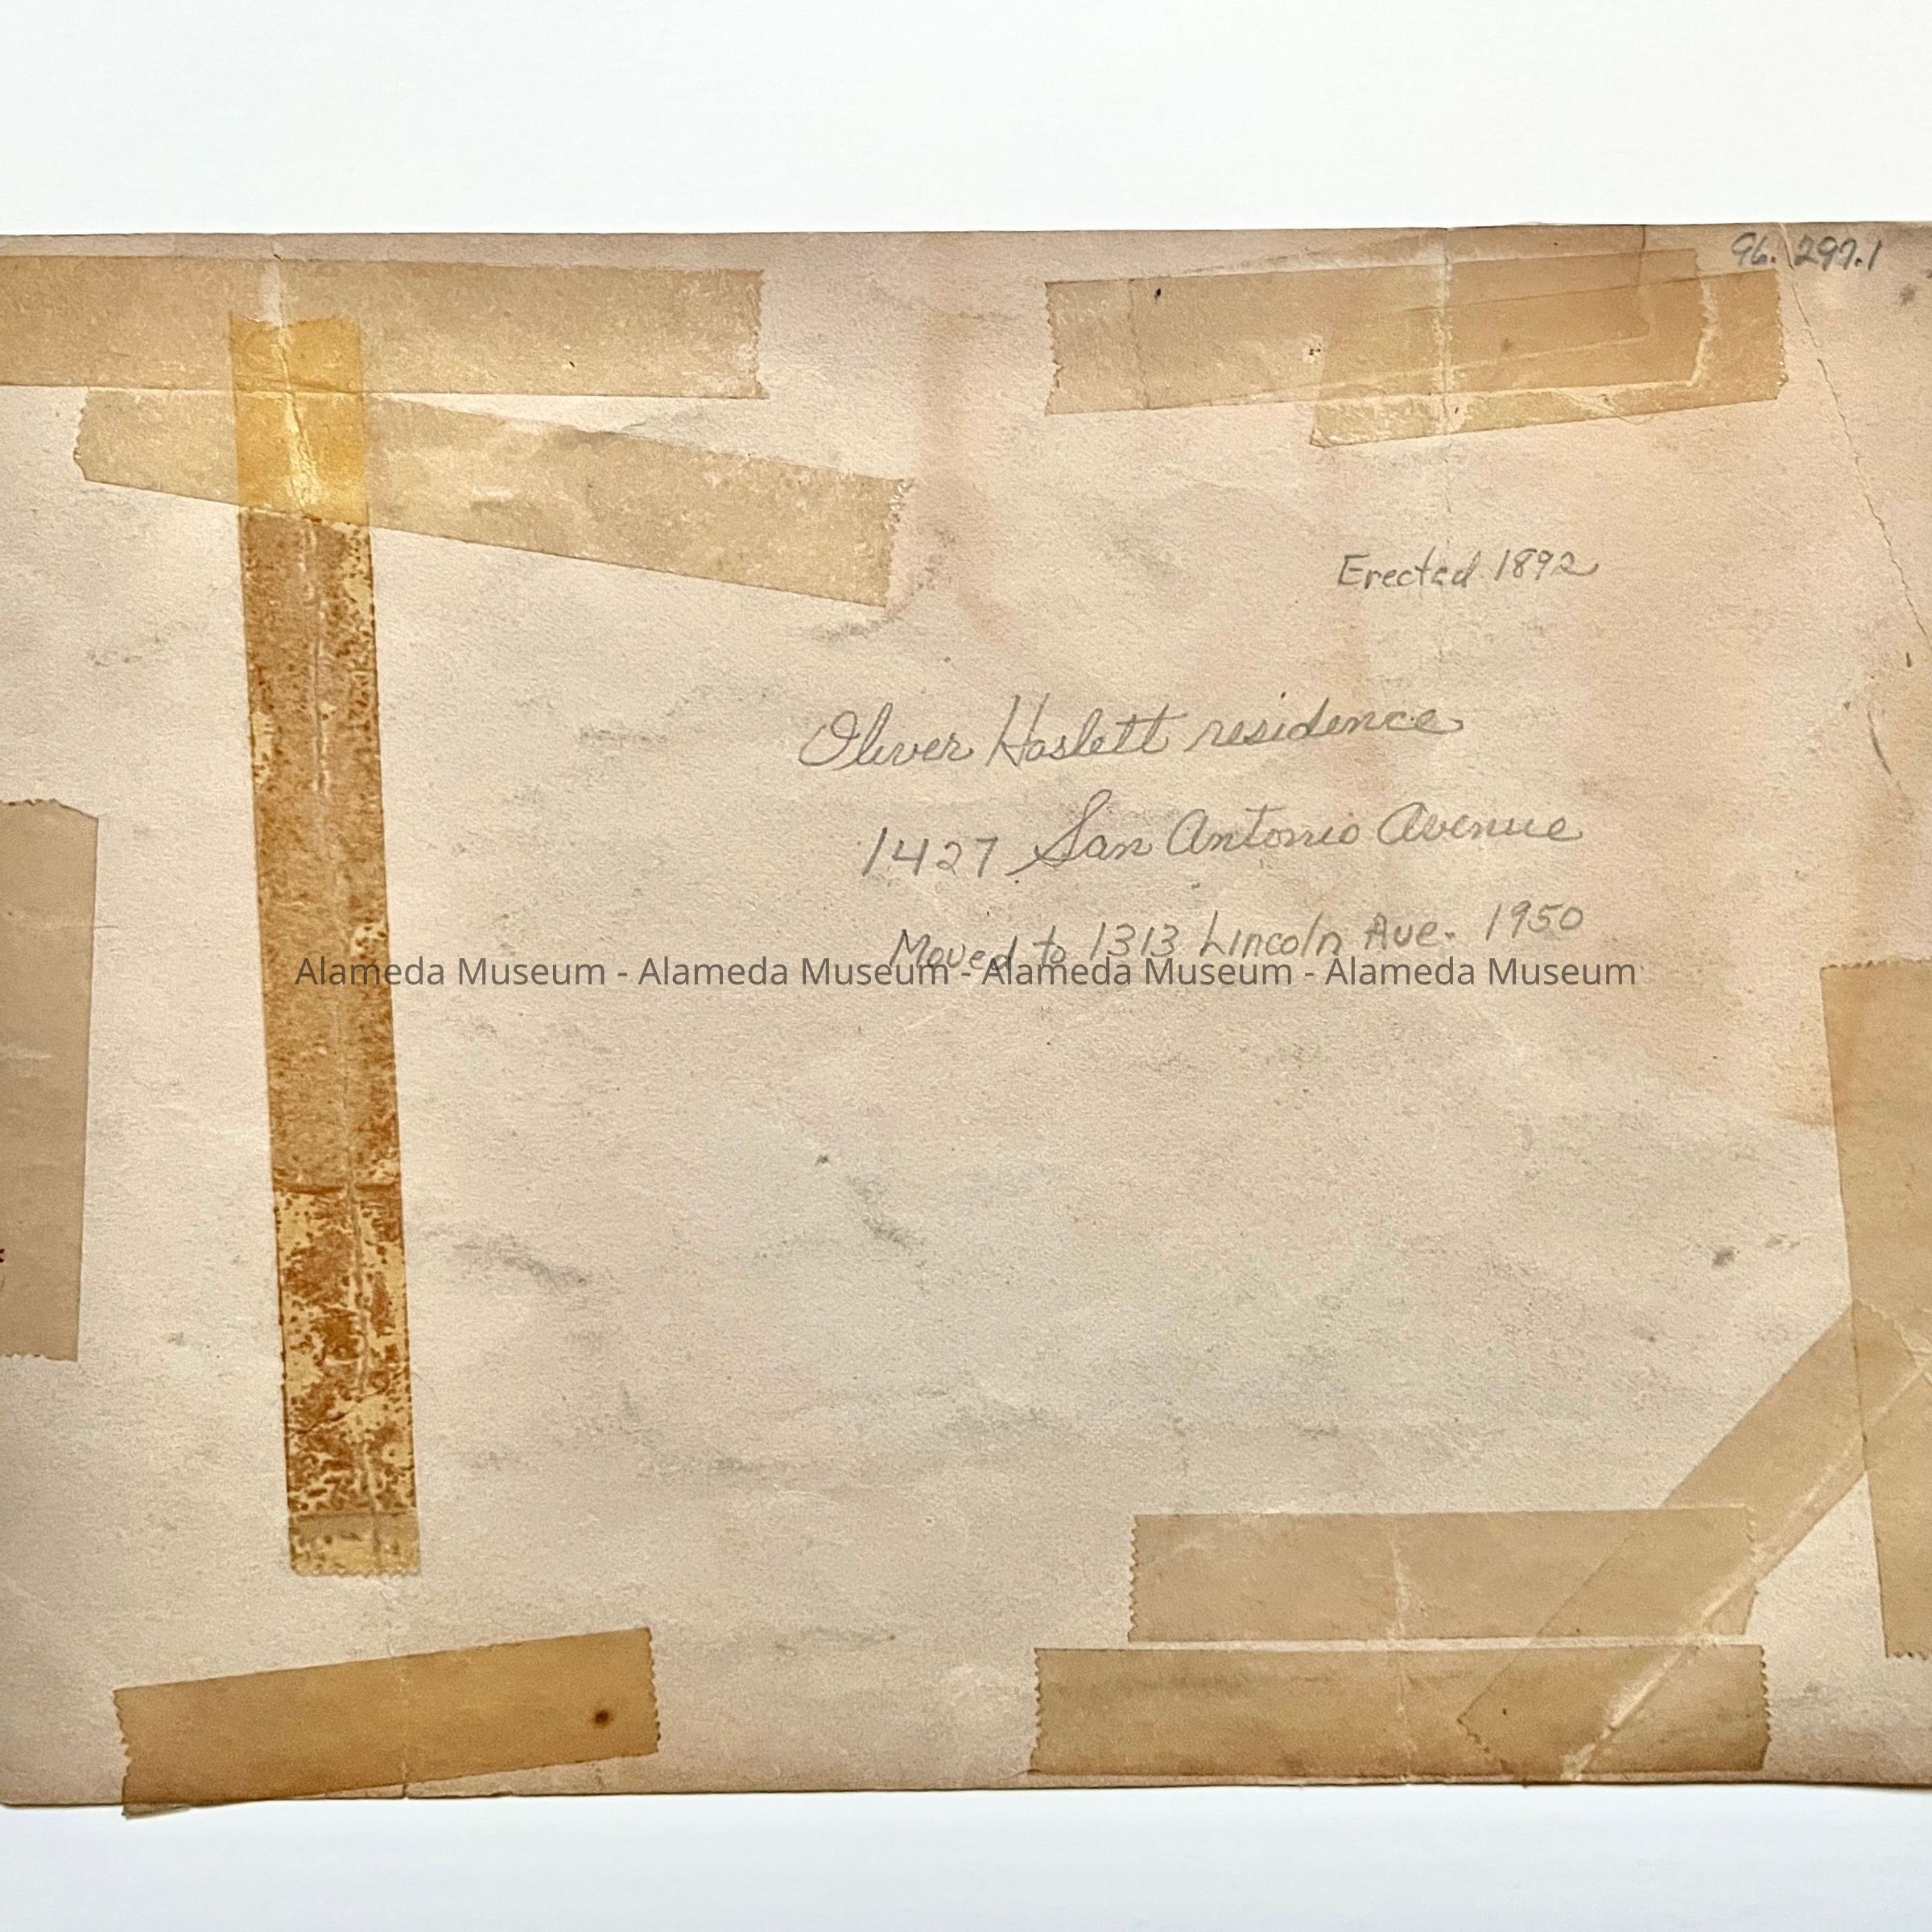 96.297.1
Erected 1892
Oliver Haslett residence
1427 San Antonio Avenue
Moved to 1313 Lincoln Ave. 1950
Alameda Museum - Alameda Museum - Alameda Museum - Alameda Museum